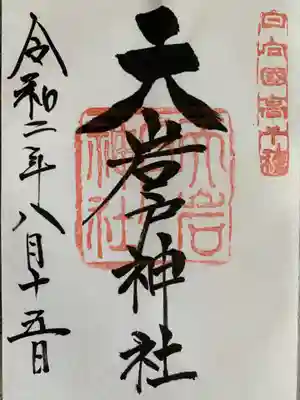 日向國高千穗
天岩戸神社
天岩
神社
令和二年八月十五日